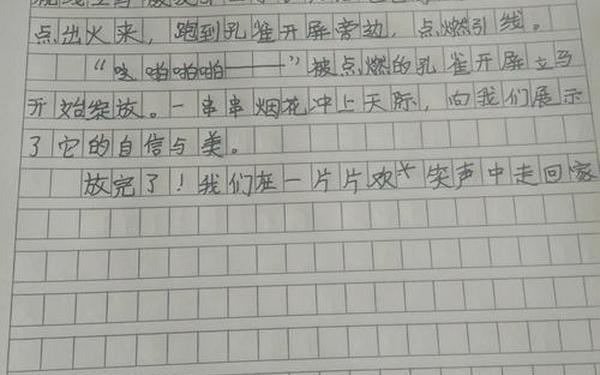 点出火来，跑到孔雀开屏旁边，点燃引线。
“咚啪啪啪——”被点燃的孔雀开屏立马
开始绽放。一串串烟花冲上天际，向我们展示
了它的自信与美。
放完了！我们在一片片欢笑声中走回家